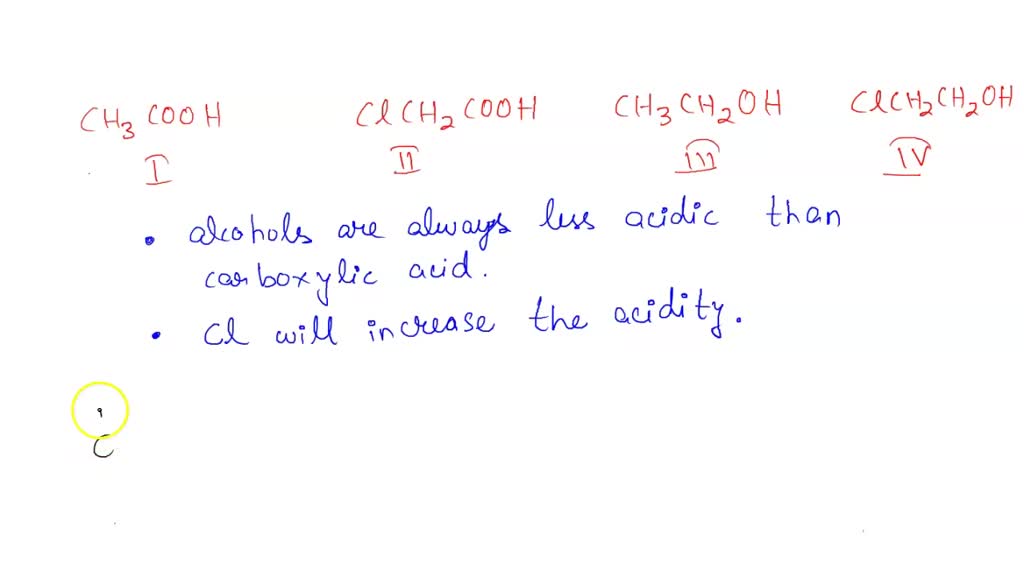 CH₃COOH ClCH₂COOH CH₃CH₂OH ClCH₂CH₂OH
I II III IV
• alcohols are always less acidic than
carboxylic acid.
• Cl will increase the acidity.
C